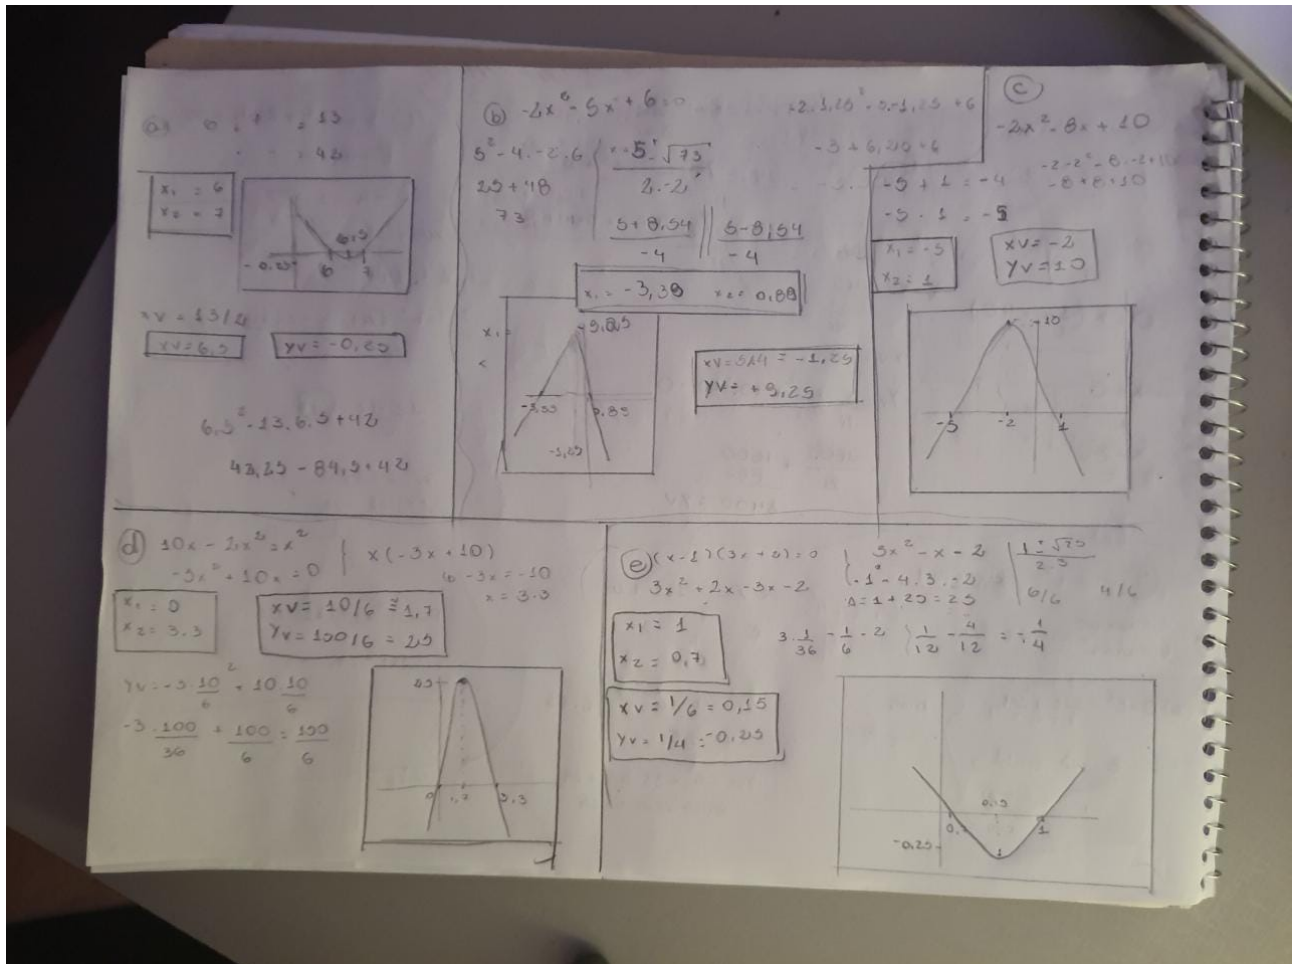 a)
= 13
= 42
x₁ = 6
x₂ = 7
6,5
-0,25
6
7
xv = 13/2
xv = 6,5
yv = -0,25
6,5² - 13.6.5 + 42
42,25 - 84,5 + 42
b) -2x² - 5x + 6 = 0
5² - 4 . -2 . 6
25 + 48
73
5 ± √73
2.-2
5 + 8,54
-4
5 - 8,54
-4
x₁ = -3,38 x₂ = 0,88
-2.1,25² - 5.-1,25 + 6
-3 + 6,25 + 6
xv = 5/-4 = -1,25
yv = +9,25
x₁ =
0,89
-1,25
c)
-2x² - 8x + 10
-2 -2² - 8.-2 + 10
-8 + 8 + 10
-5 + 1 = -4
-5 . 1 = -5
x₁ = -5
x₂ = 1
xv = -2
yv = 10
10
-5
-2
1
d) 10x - 2x² = x²
-3x² + 10x = 0
x(-3x + 10)
-3x = -10
x = 3.3
x₁ = 0
x₂ = 3.3
xv = 10/6 ≅ 1,7
yv = 150/6 = 25
yv = -3.10/6² + 10.10/6
-3.100/36 + 100/6 = 150/6
25
0
1,7
3.3
e) (x-1)(3x+2)=0
3x² + 2x - 3x - 2
3x² - x - 2
-1² - 4.3.-2
Δ = 1 + 25 = 25
1 ± √25
2.3
6/6
4/6
x₁ = 1
x₂ = 0,7
3.1/36 - 1/6 - 2
1/12 - 4/12 = -1/4
xv = 1/6 = 0,15
yv = 1/4 = -0,25
0,15
1
-0,25